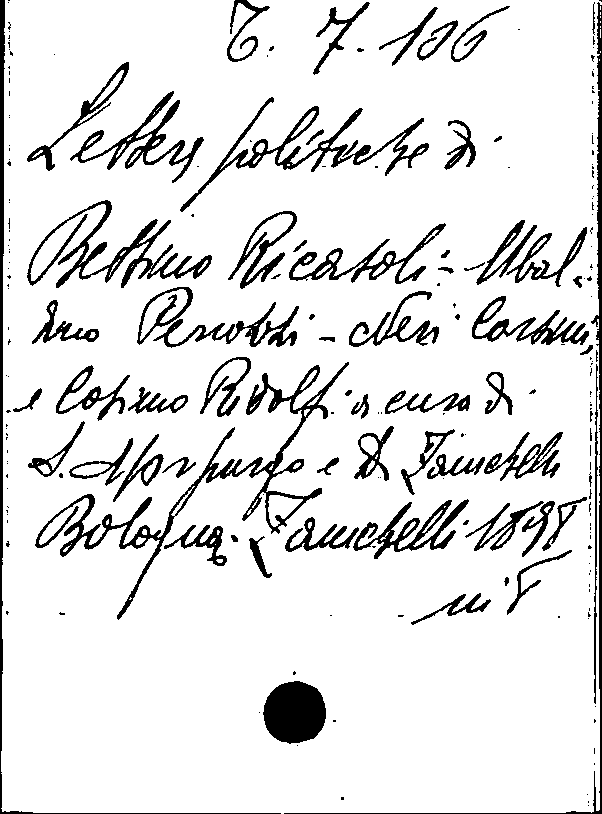 6. 7. 106
Lettere politiche di
Bettino Ricasoli - Ubal-
dino Peruzzi - Neri Corsini,
e Cosimo Ridolfi a cura di
S. Morpurgo e D. Zanichelli
Bologna. Zanichelli 1898
in 8